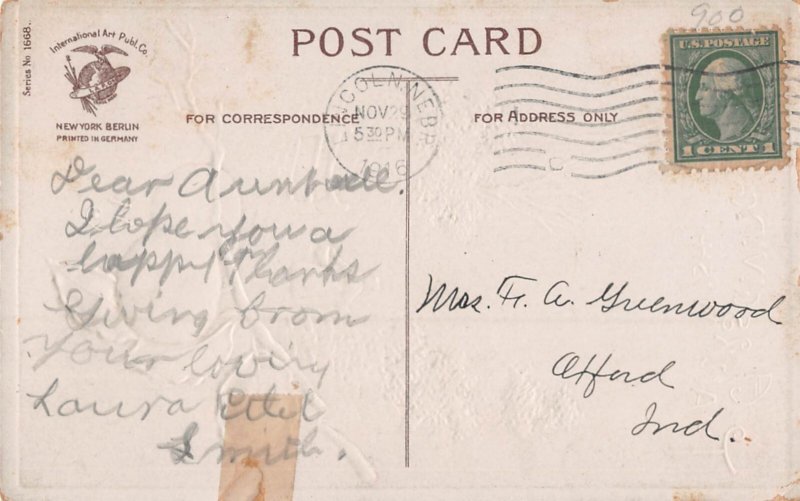 Series No 1668.
International Art Publ. Co.
NEW YORK BERLIN
PRINTED IN GERMANY
POST CARD
FOR CORRESPONDENCE
FOR ADDRESS ONLY
LINCOLN, NEBR.
NOV 29
5 30 PM
1916
900
U.S. POSTAGE
1 CENT 1
Dear Aunt
I hope you a
happy Thanks
Giving from
your loving
Laura Etel
Smith.
Mrs. F. A. Greenwood
Oxford
Ind.